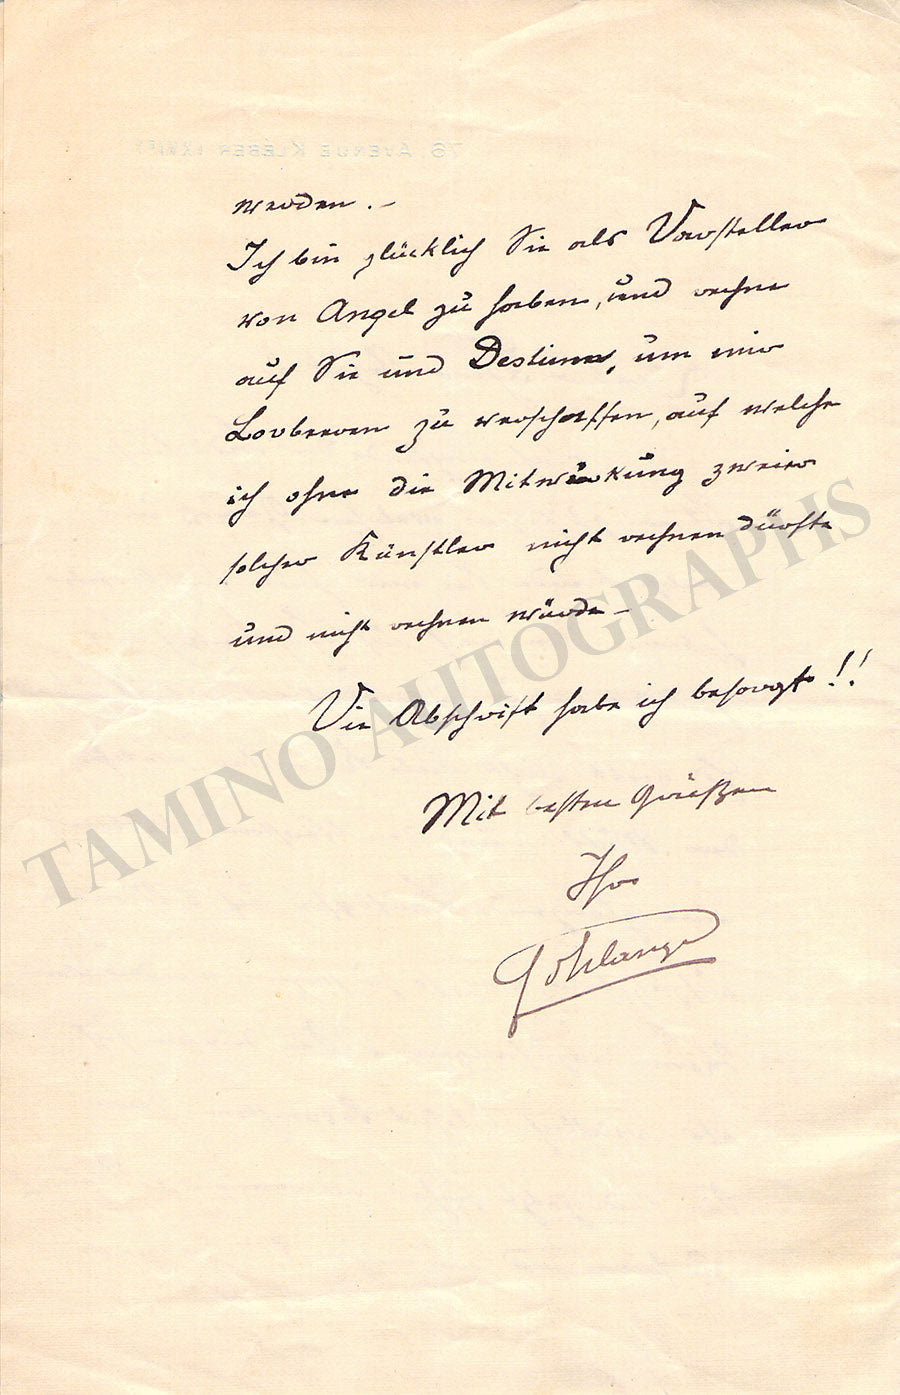 werden. –
Ich bin glücklich Sie als Darsteller
von Angel zu haben, und rechne
auf Sie und Destinn, um mir
Lorbeeren zu verschaffen, auf welche
ich ohne die Mitwirkung zweier
solcher Künstler nicht rechnen dürfte
und nicht rechnen würde –
Die Abschrift habe ich besorgt!!
Mit besten Grüßen
Ihr
TAMINO AUTOGRAPHS